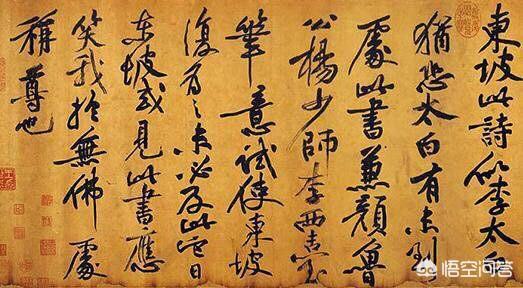 東坡此詩似李太白
猶恐太白有未到
處此書兼顔魯
公楊少師李西臺
筆意試使東坡
復爲之未必及此它日
東坡或見此書應
笑我於無佛處
稱尊也
悟空问答